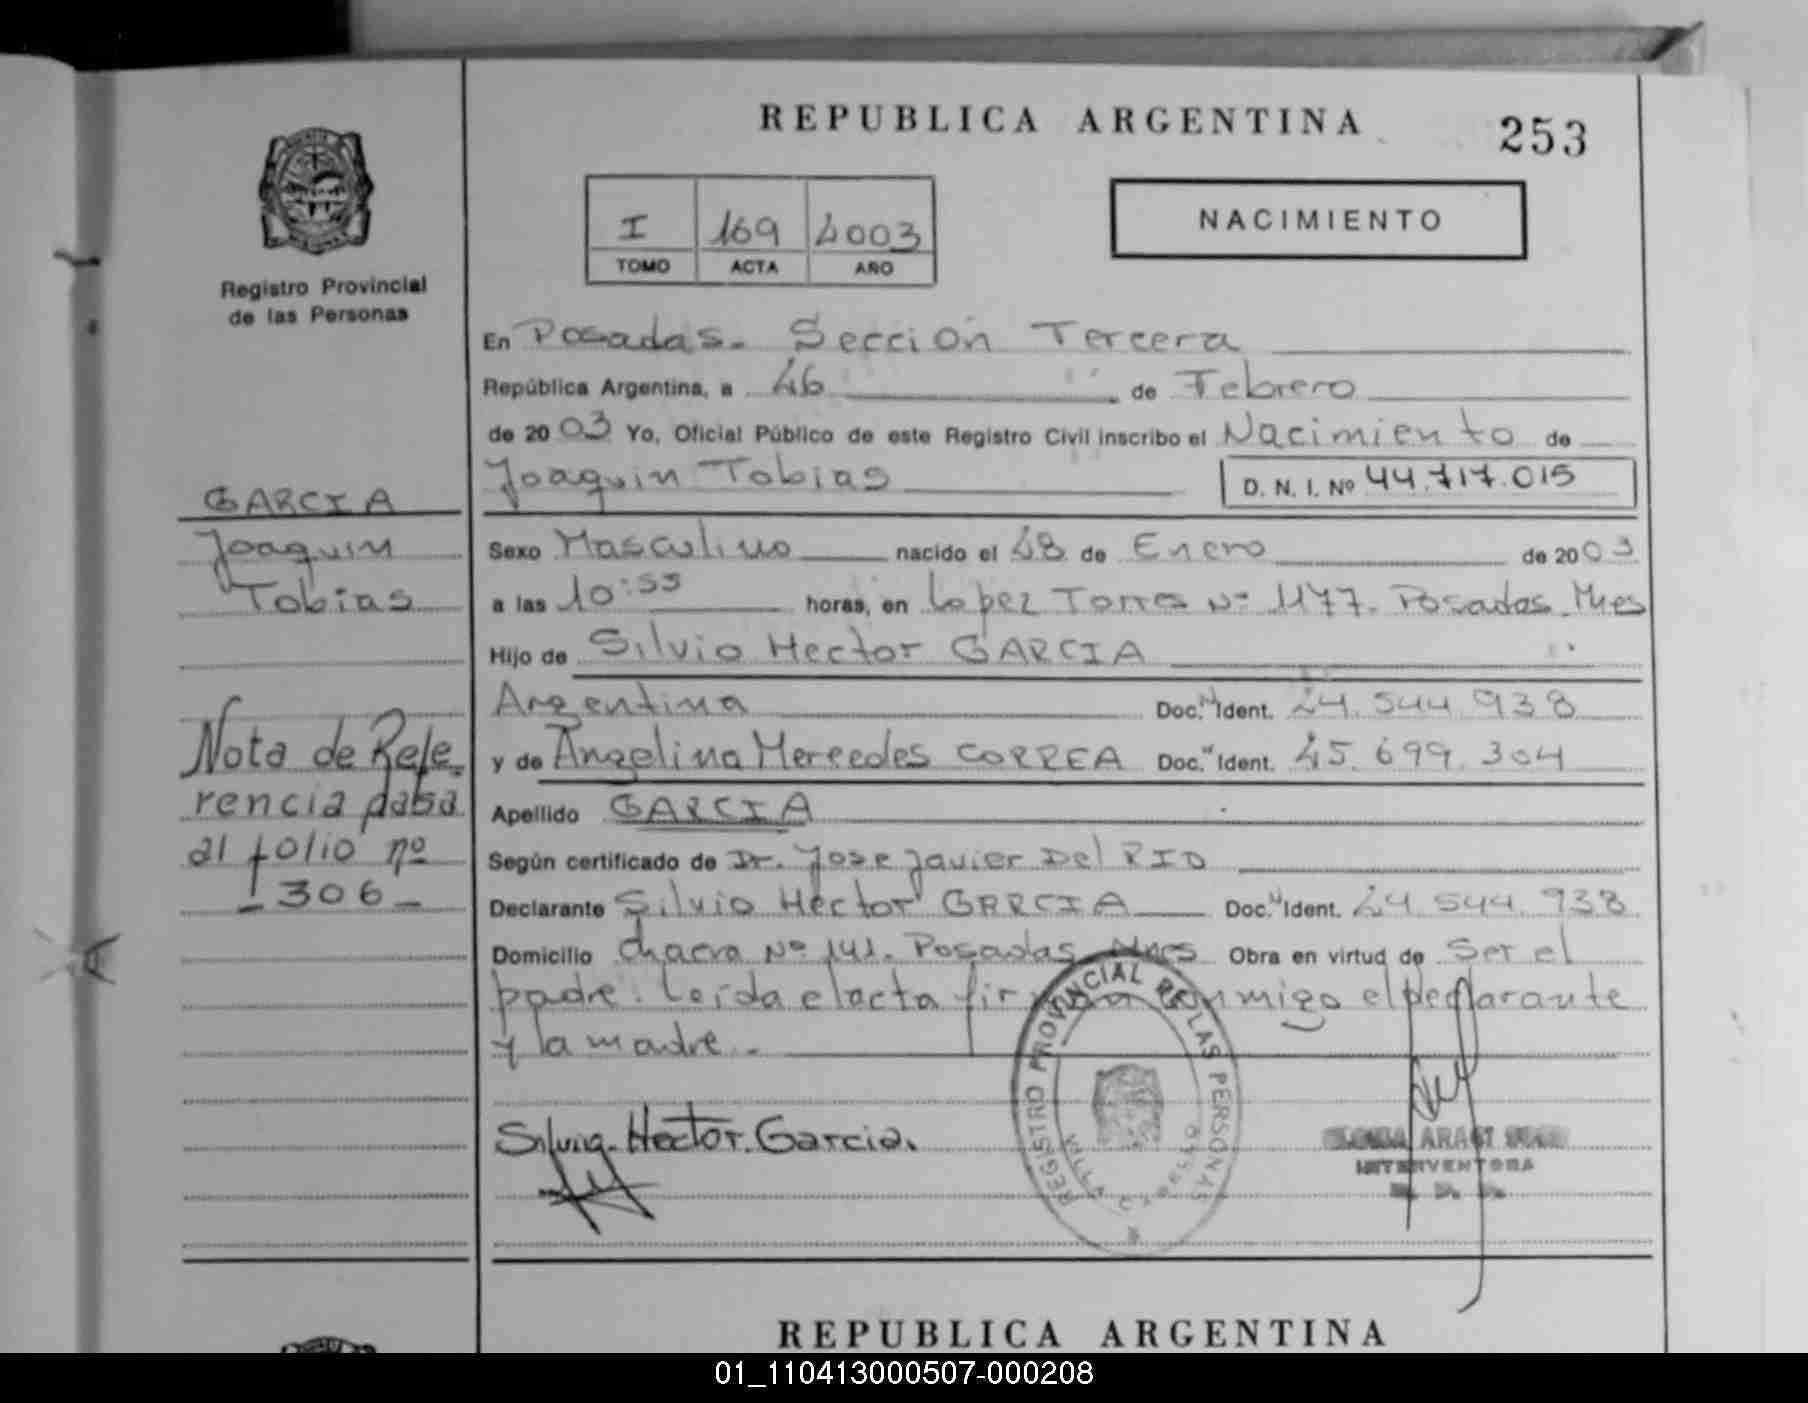 REPUBLICA ARGENTINA
253
I 169 2003
TOMO ACTA AÑO
NACIMIENTO
Registro Provincial
de las Personas
En Posadas. Sección Tercera
República Argentina, a 26 de Febrero
de 2003 Yo, Oficial Público de este Registro Civil inscribo el Nacimiento de
Joaquin Tobias D. N. I. Nº 44.717.015
GARCIA
Joaquin
Tobias
Sexo Masculino nacido el 28 de Enero de 2003
a las 10:55 horas, en Lopez Torres Nº 1177. Posadas Mnes
Hijo de Silvio Hector GARCIA
Argentina Doc. N Ident. 24.544.938
y de Angelina Mercedes CORREA Doc. N Ident. 25.699.304
Apellido GARCIA
Según certificado de Dr. Jose Javier Del RIO
Declarante Silvio Hector GARCIA Doc. N Ident. 24.544.938
Domicilio Chacra Nº 141. Posadas Mnes Obra en virtud de Ser el
padre. Leída el acta firman conmigo el Declarante
y la madre.-
Nota de Refe
rencia pasa
al folio nº
- 306 -
Silvio Hector Garcia.
REGISTRO PROVINCIAL DE LAS PERSONAS
INTERVENTORA
REPUBLICA ARGENTINA
01_110413000507-000208